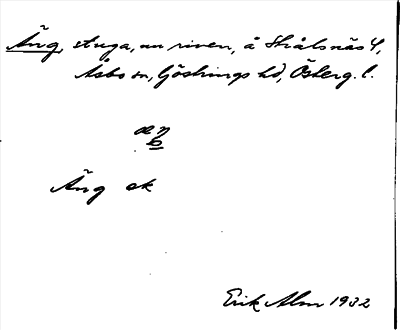 Äng, stuga, nu riven, å Strålsnäs 4,
Åsbo sn, Göstrings hd, Österg. l.
æŋ
6
Äng ek
Erik Alm 1932